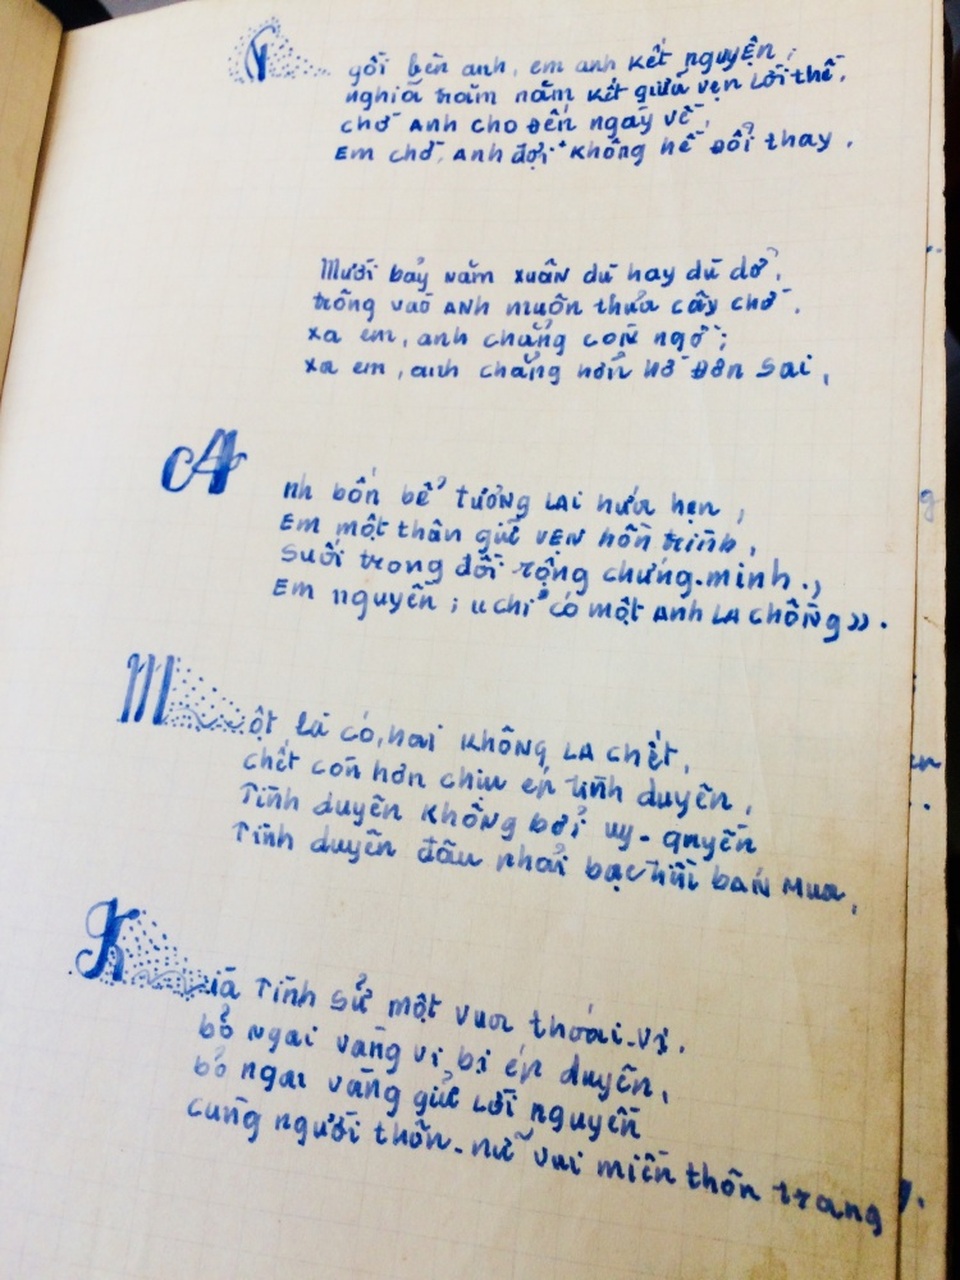 Ngồi bên anh, em anh kết nguyện;
nghiã trăm năm kết giữa vẹn lời thề.
chờ Anh cho đến ngày về,
Em chờ, Anh đợi không hề đổi thay.
Mười bảy năm xuân dù hay dù dở,
trồng vào Anh muôn thưả cây chờ.
xa em, anh chẳng còn ngờ;
xa em, anh chẳng hờn đơn sai,
Anh bốn bể tương lai hưá hẹn,
Em một thân giữ vẹn hồn trinh,
Suối trong đồi rộng chứng-minh.,
Em nguyền; «chỉ có một Anh là chồng».
Một là có, hai không, là chết,
chết còn hơn chiu ép tình duyên,
Tình duyên không bởi uy-quyền
Tình duyên đâu phải bạc tiền bán mua,
Kià tình sử một vua thoái-vị.
bỏ ngai vàng vì bi ép duyên,
bỏ ngai vàng giữ lời nguyền
cùng người thôn-nữ vui miền thôn trang